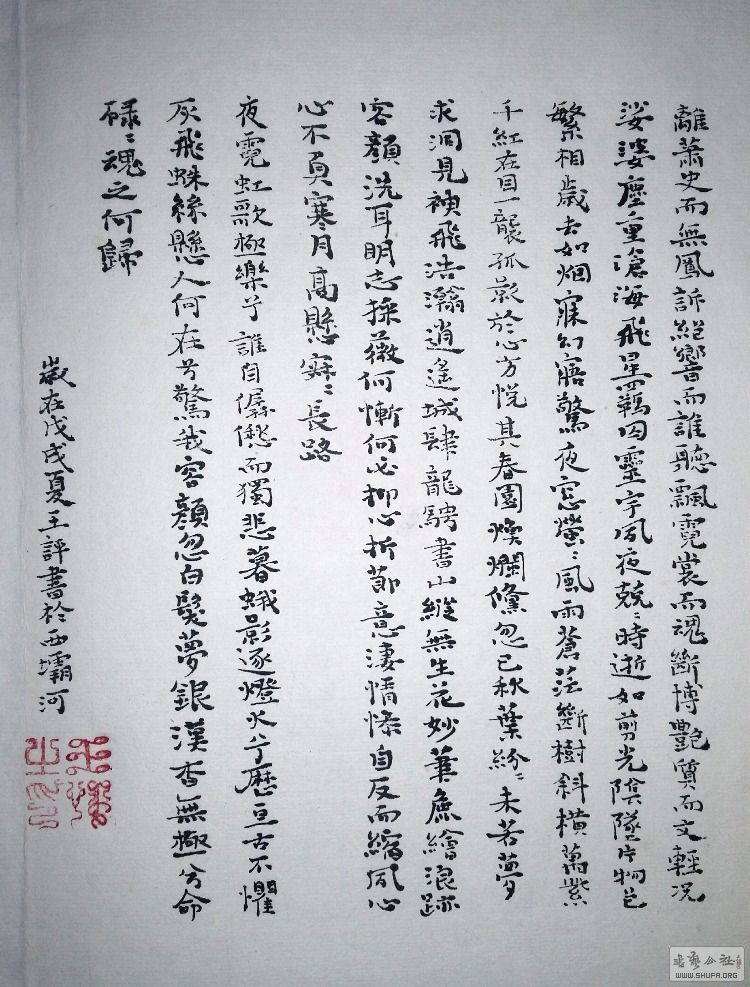 離蕭史而無鳳訴絕響而誰聽飄霓裳而魂斷博艷質而文輕况
娑婆塵重滄海飛星羈囚靈宇夙夜兢〻時逝如剪光隙墜片物色
繁相歲去如烟寐幻寤驚夜窓螢〻風雨蒼茫斷樹斜橫萬紫
千紅在目一襲孤影於心方悅其春園煥爛儻忽已秋葉紛〻未若夢
求洞見神飛浩瀚逍遙城肆龍騁書山縱無生花妙筆焦繪浪跡
容顏洗耳明志採薇何慚何必抑心折節意淒情慘自反而縮夙心
心不負寒月高懸寂〻長路
夜霓虹歌極樂兮誰自僝僽而獨悲暮蛾影逐燈火兮歷亘古不懼
灰飛蛛絲懸人何在兮驚我容顏忽白髮夢銀漢杳無極兮命
碌〻魂之何歸
歲在戊戌夏王評書於西壩河
書法公社
WWW.SHUFA.ORG